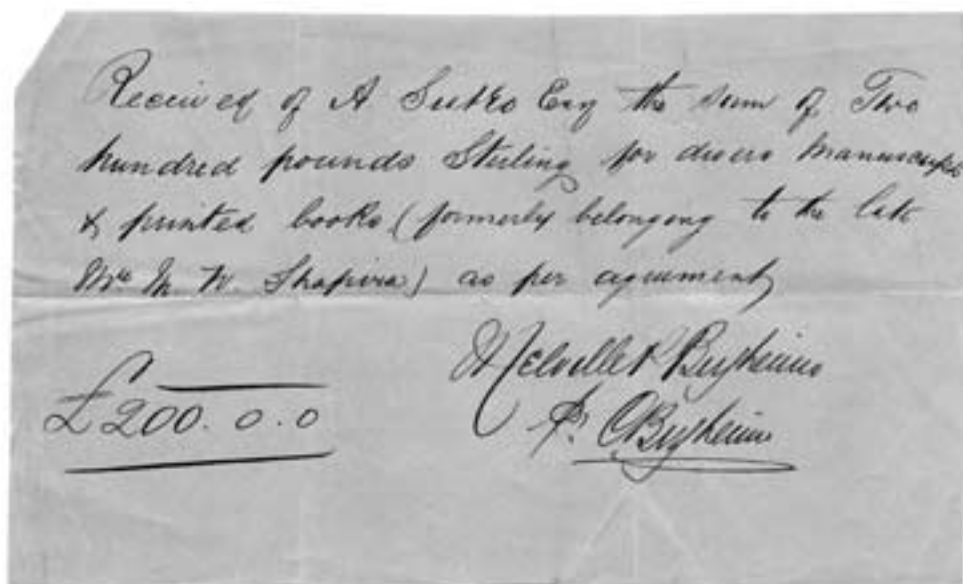 Received of A Sutro Esq the sum of Two
hundred pounds Sterling for divers Manuscripts
& printed books (formerly belonging to the late
Mr M. W. Shapira) as per agreement
Melville & Bergheim
£200. 0. 0
Bergheim